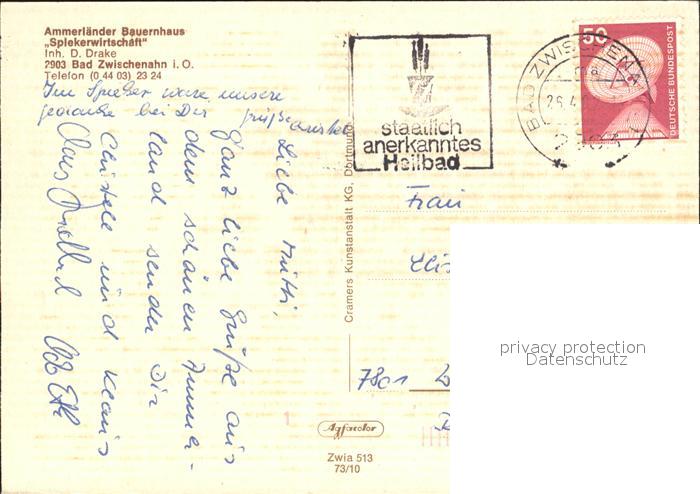 Ammerländer Bauernhaus
„Spiekerwirtschaft"
Inh. D. Drake
2903 Bad Zwischenahn i. O.
Telefon (0 44 03) 23 24
Im Spieker waren unsere
gedanken bei Dir
Liebe Mutti,
Ganz liebe Grüße aus
dem schönen Ammer-
land senden Dir
Christel und Klaus
staatlich
anerkanntes
Heilbad
BAD ZWISCHENAHN
26.4
2903
50
DEUTSCHE BUNDESPOST
Cramers Kunstanstalt KG, Dortmund
Frau
7801
privacy protection
Datenschutz
Agfacolor
Zwia 513
73/10